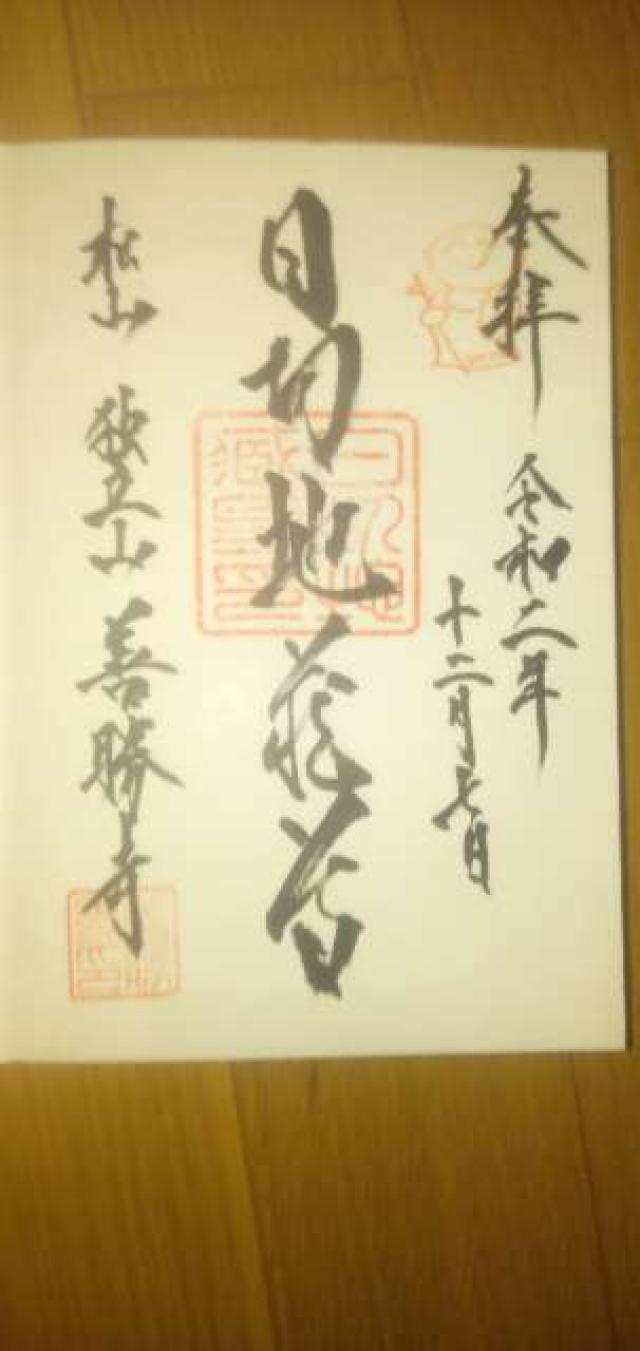 奉拝
令和二年
十二月七日
日切地蔵尊
松山 独立山 善勝寺